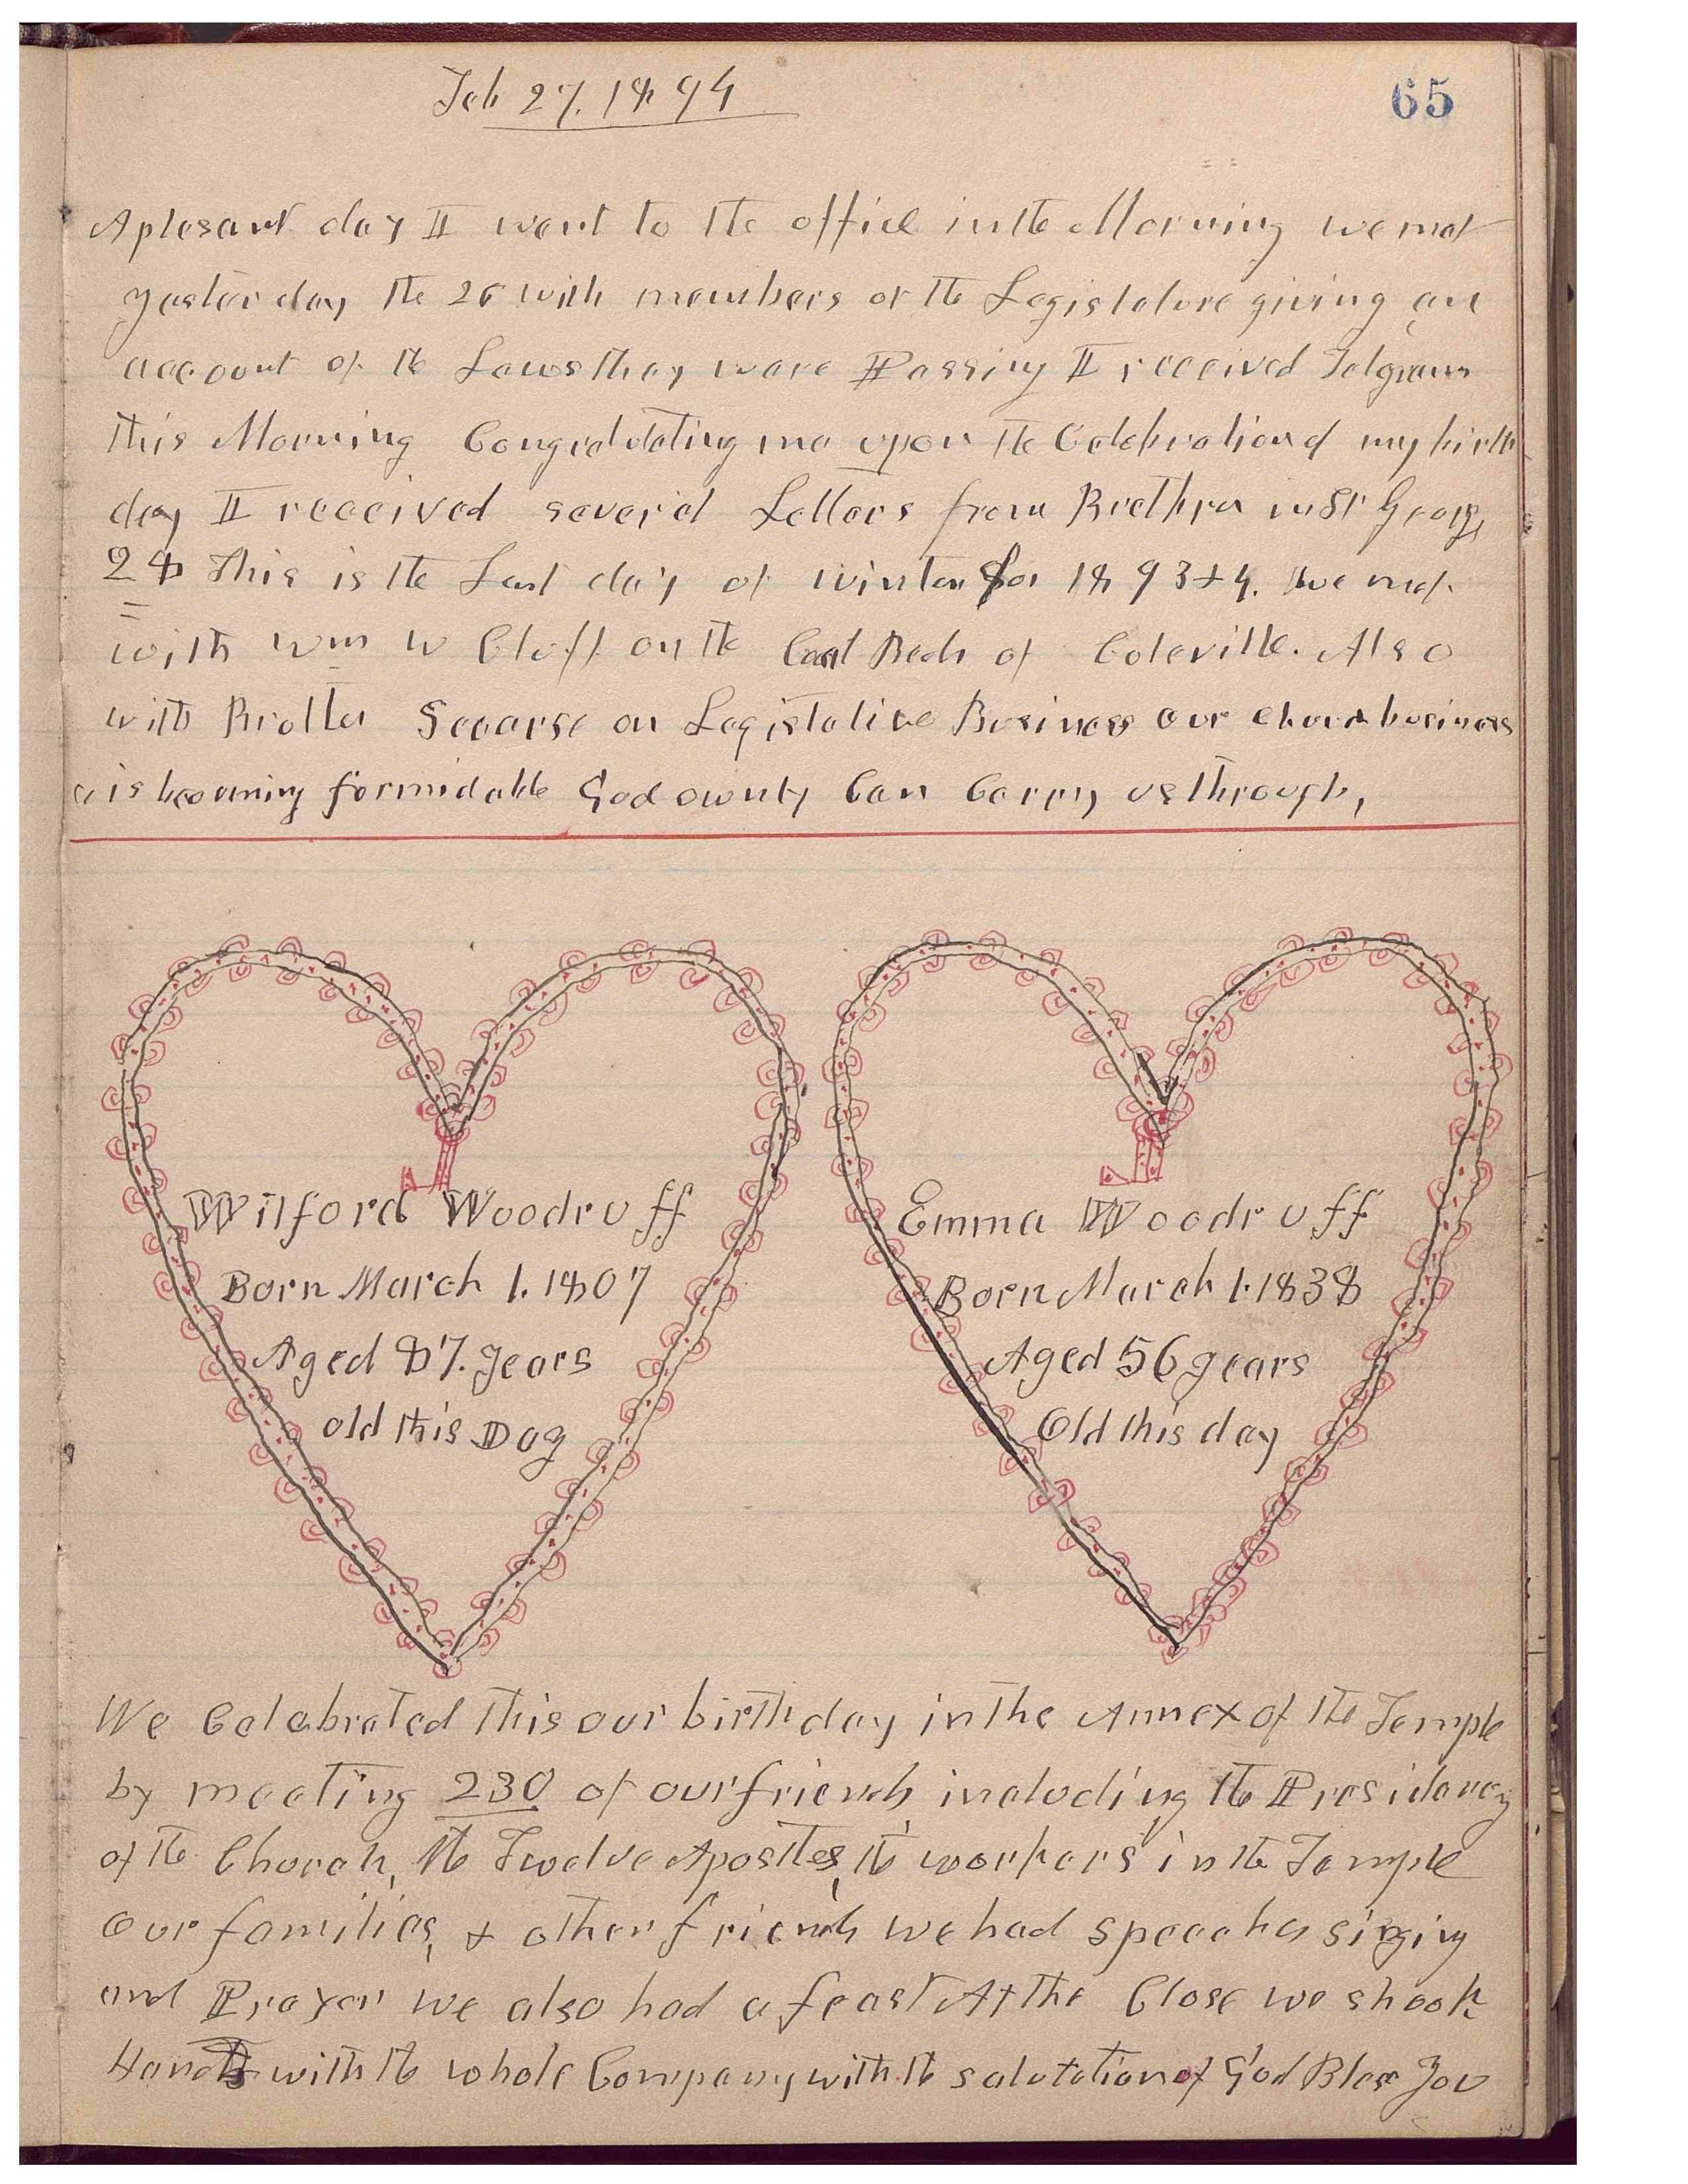 Feb 27. 1894
65
A plesant day I went to the office in the Morning we met
yesterday the 26 with members of the Legislature giving an
account of the Laws they ware Passing I received Telgram
this Morning Congratulating me upon the Celebration of my birth
day I received several Letters from Brethren in St George
28 This is the Last day of winter for 1893 & 4. we met
with Wm W Cluff on the Coal Beds of Coleville. Also
with Brother Scearse on Legislative Business our church business
is becoming formidable God ownly Can Carry us through,
Wilford Woodruff
Born March 1. 1807
Aged 87. years
old this Day
Emma Woodruff
Born March 1. 1838
Aged 56 years
Old this day
We Celebrated this our birth day in the Annex of the Temple
by meeting 230 of our friends including the Presidency
of the Church, the Twelve Apostles, the workers in the Temple
Our families, & other friends we had speeches singing
and Prayer we also had a feast At the Close we shook
Hands with the whole Company with the salutation of God Bless You